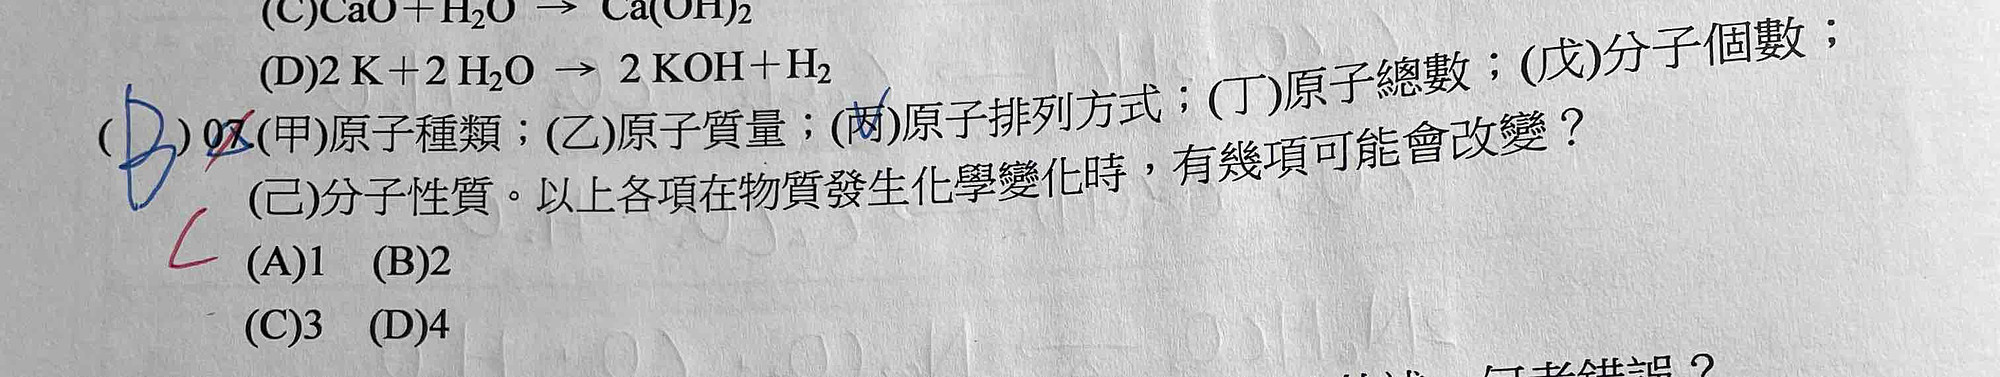 (C)CaO＋H₂O → Ca(OH)₂
(D)2 K＋2 H₂O → 2 KOH＋H₂
(B) 07.(甲)原子種類；(乙)原子質量；(丙)原子排列方式；(丁)原子總數；(戊)分子個數；
(己)分子性質。以上各項在物質發生化學變化時，有幾項可能會改變？
C
(A)1 (B)2
(C)3 (D)4
何者錯誤？